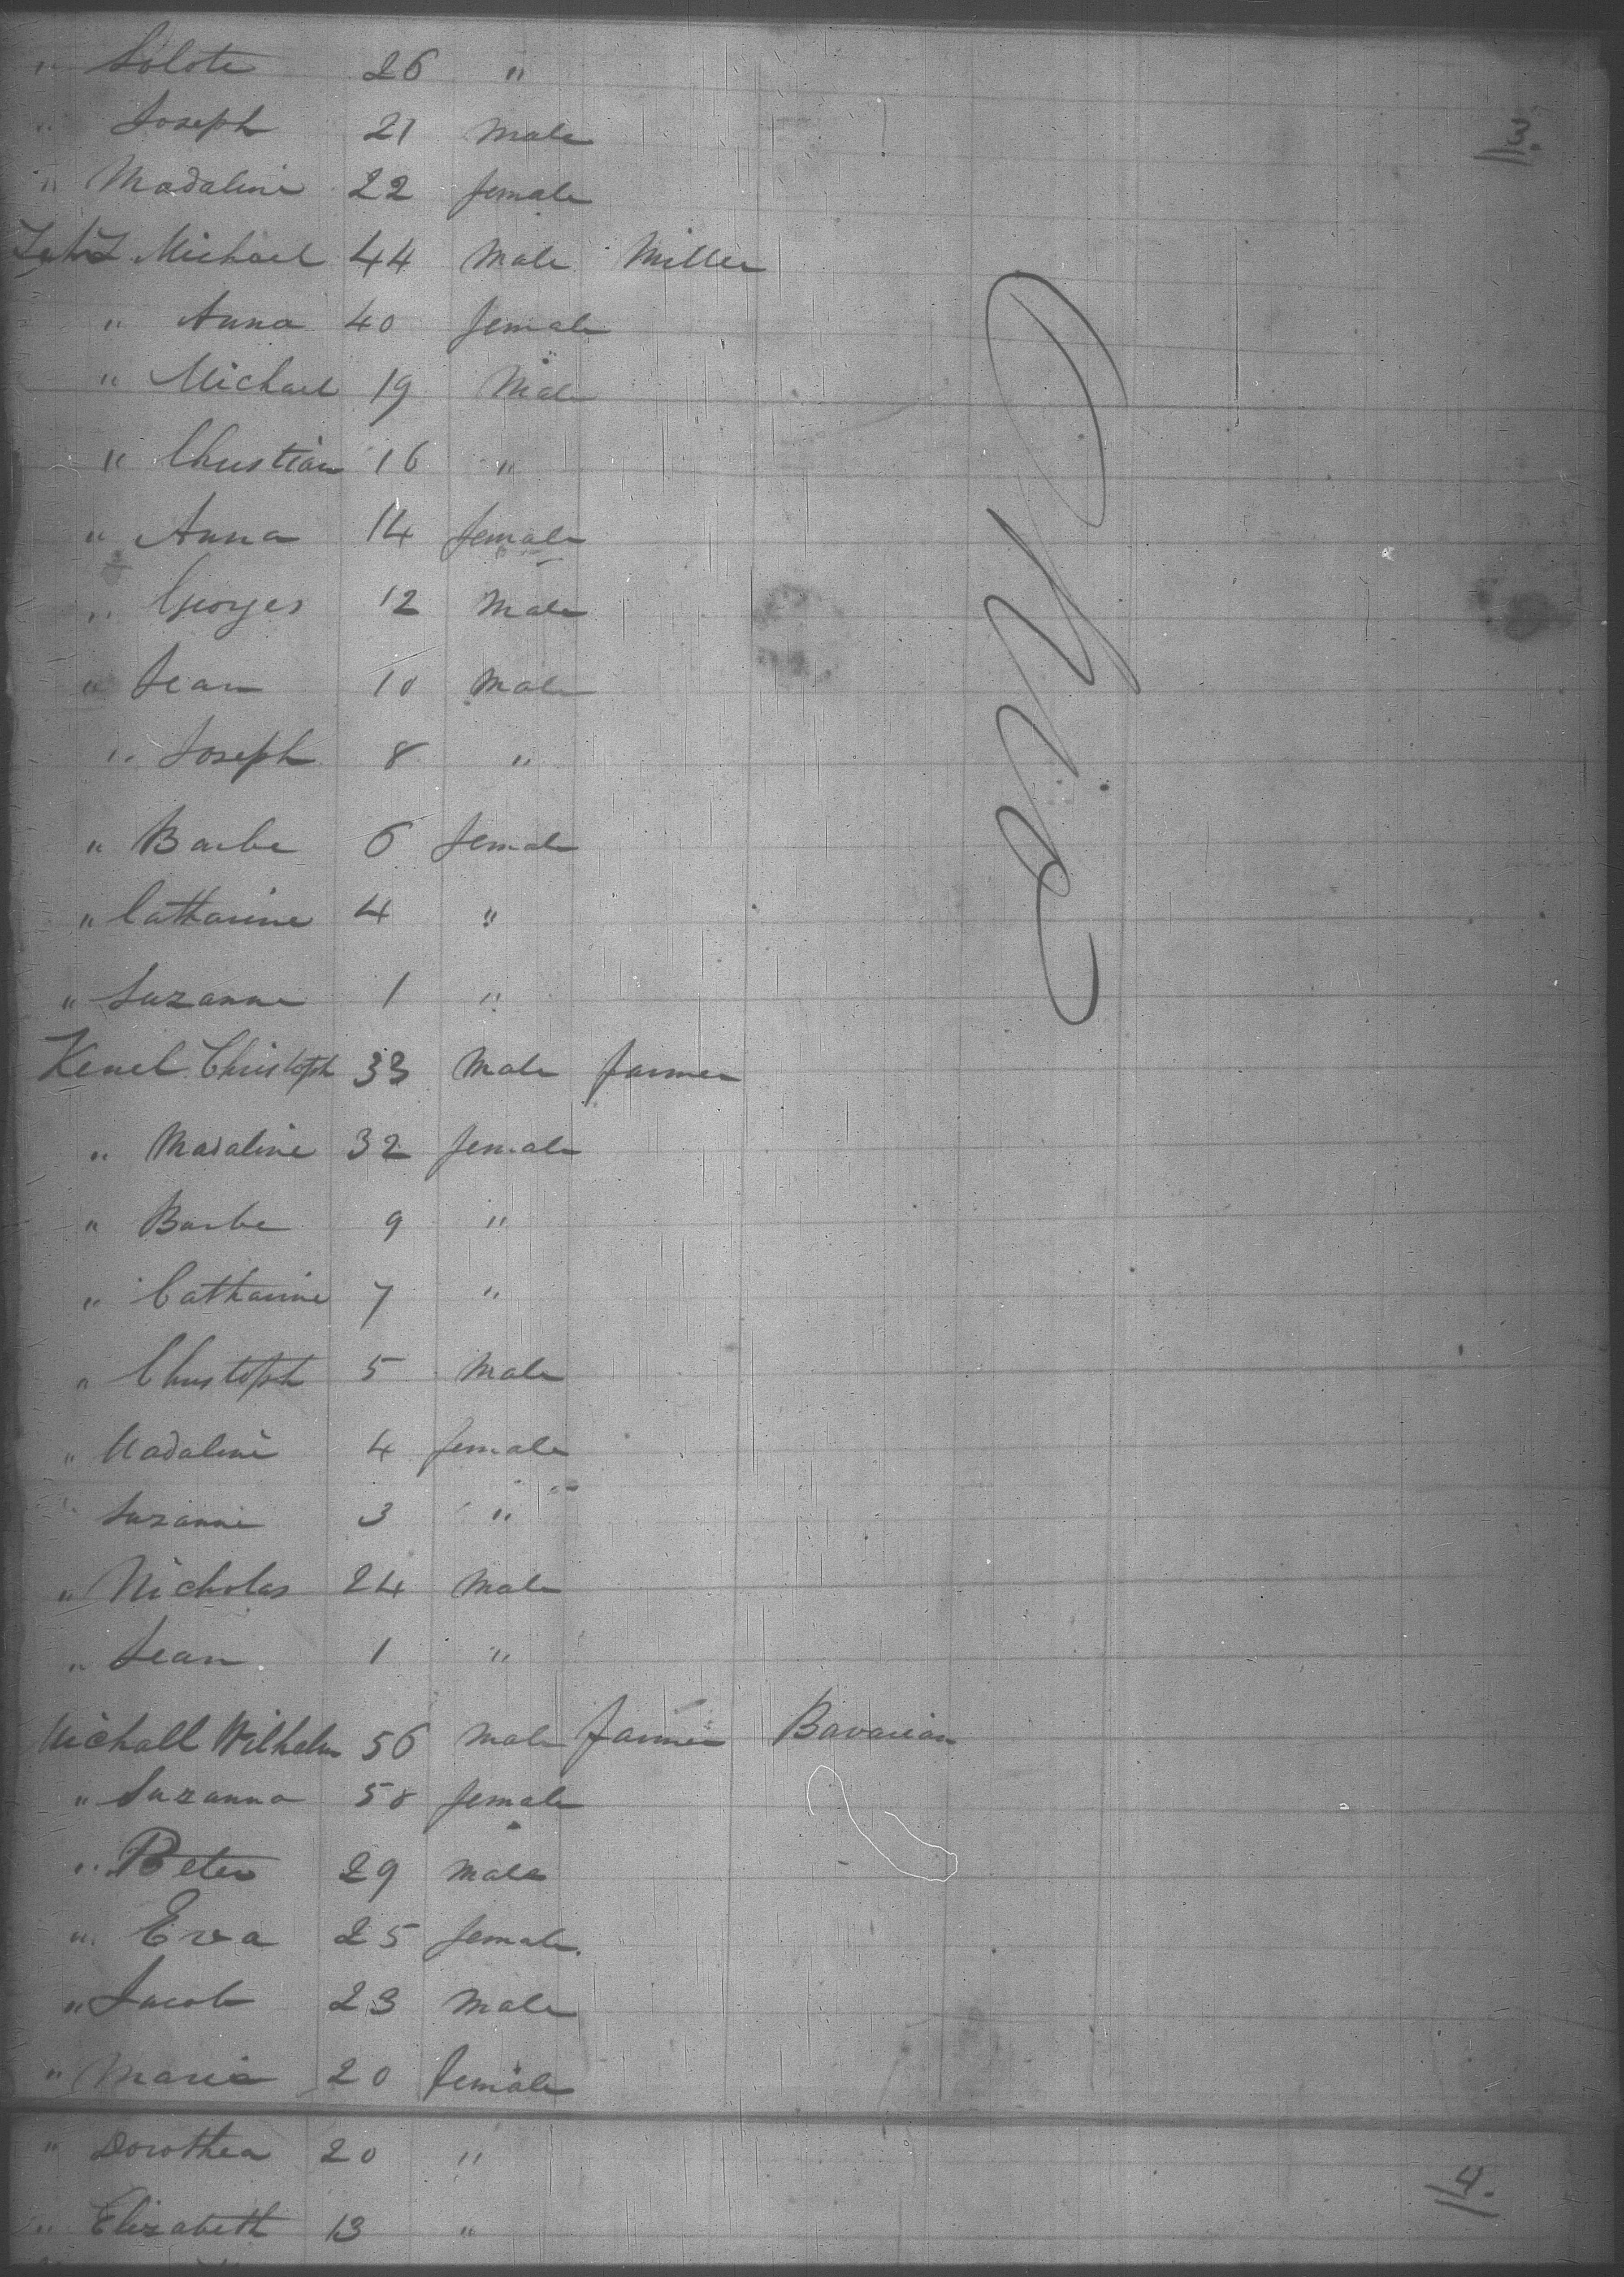 " Solote 26 "
" Joseph 21 male
3.
" Madaline 22 female
Michael 44 male Miller
" Anna 40 female
" Michael 19 Male
" Christian 16 "
" Anna 14 female
" Georges 12 Male
" Jean 10 Male
" Joseph 8 "
" Barbe 6 female
" Catharine 4 "
" Suzanne 1 "
Kenel Christoph 33 Male farmer
" Madaline 32 female
" Barbe 9 "
" Catharine 7 "
" Christoph 5 Male
" Madaline 4 female
" Suzanne 3 "
" Nicholas 24 Male
" Jean 1 "
Michall Wilhelm 56 male farmer Bavarian
" Suzanna 58 female
" Peter 29 male
" Eva 25 female
" Jacob 23 male
" Maria 20 female
" Dorothea 20 "
4.
" Elizabeth 13 "